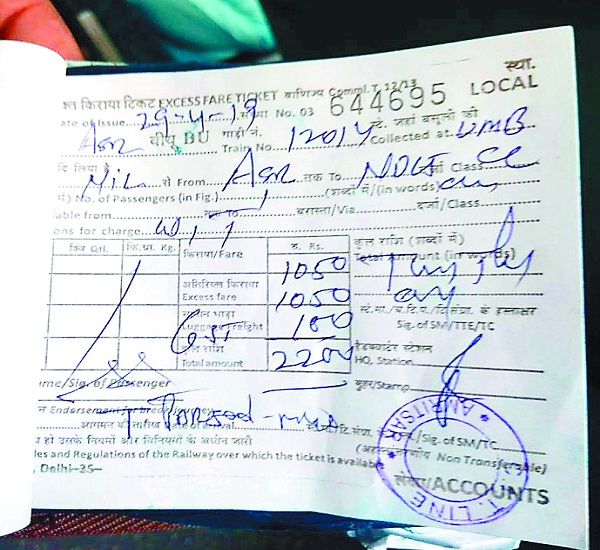 स्था.
श्त किराया टिकट EXCESS FARE TICKET वाणिज्य Comml. T. 12/13
644695 LOCAL
ate of Issue 29-4-19 No. 03
Asr बीयू BU गाड़ी नं. Train No. 12014 स्टे. जहां वसूली की Collected at UMB
दि लिया है
Nil से From Asr तक To NDLS Class CC
में) No. of Passengers (in Fig.) 1 (शब्दों में/(in words)
lable from तक To बरास्ता/Via दर्जा/Class
ons for charge
क्विं Qtl. कि.ग्रा. Kg. किराया/Fare रु. Rs. कुल राशि (शब्दों में)
1050 Total amount (in words)
अतिरिक्त किराया
Excess fare 1050
सामान भाड़ा स्टे.मा./च.टि.प./टि.संग्रा. के हस्ताक्षर
Luggage Freight GST 100 Sig. of SM/TTE/TC
कुल राशि हैडक्वार्टर स्टेशन
Total amount 2200 HQ, Station
me/Sig. of Passenger मुहर/Stamp
Endorsement for break
आगमन की तारीख Date of arrival टि. संग्रा. /Sig. of SM/TC
(अहस्तांतरणीय Non Transferable)
व हो उसके नियमों और विनियमों के अधीन जारी
les and Regulations of the Railway over which the ticket is available
, Delhi-35- लेखा/ACCOUNTS
LINE * AMRITSAR *